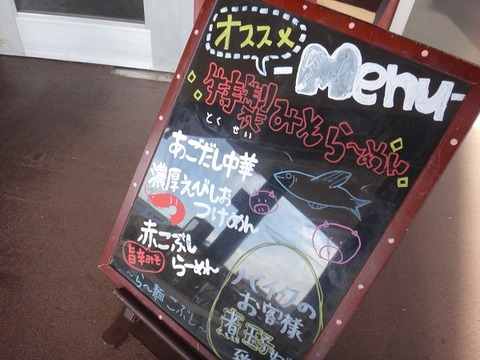 オススメ
Menu
特製みそら〜めん
とくせい
あごだし中華
濃厚えびしお
つけめん
赤こぶし
旨辛みそ
らーめん
〜らー麺 こぶし〜
バイクの
お客様
煮玉子